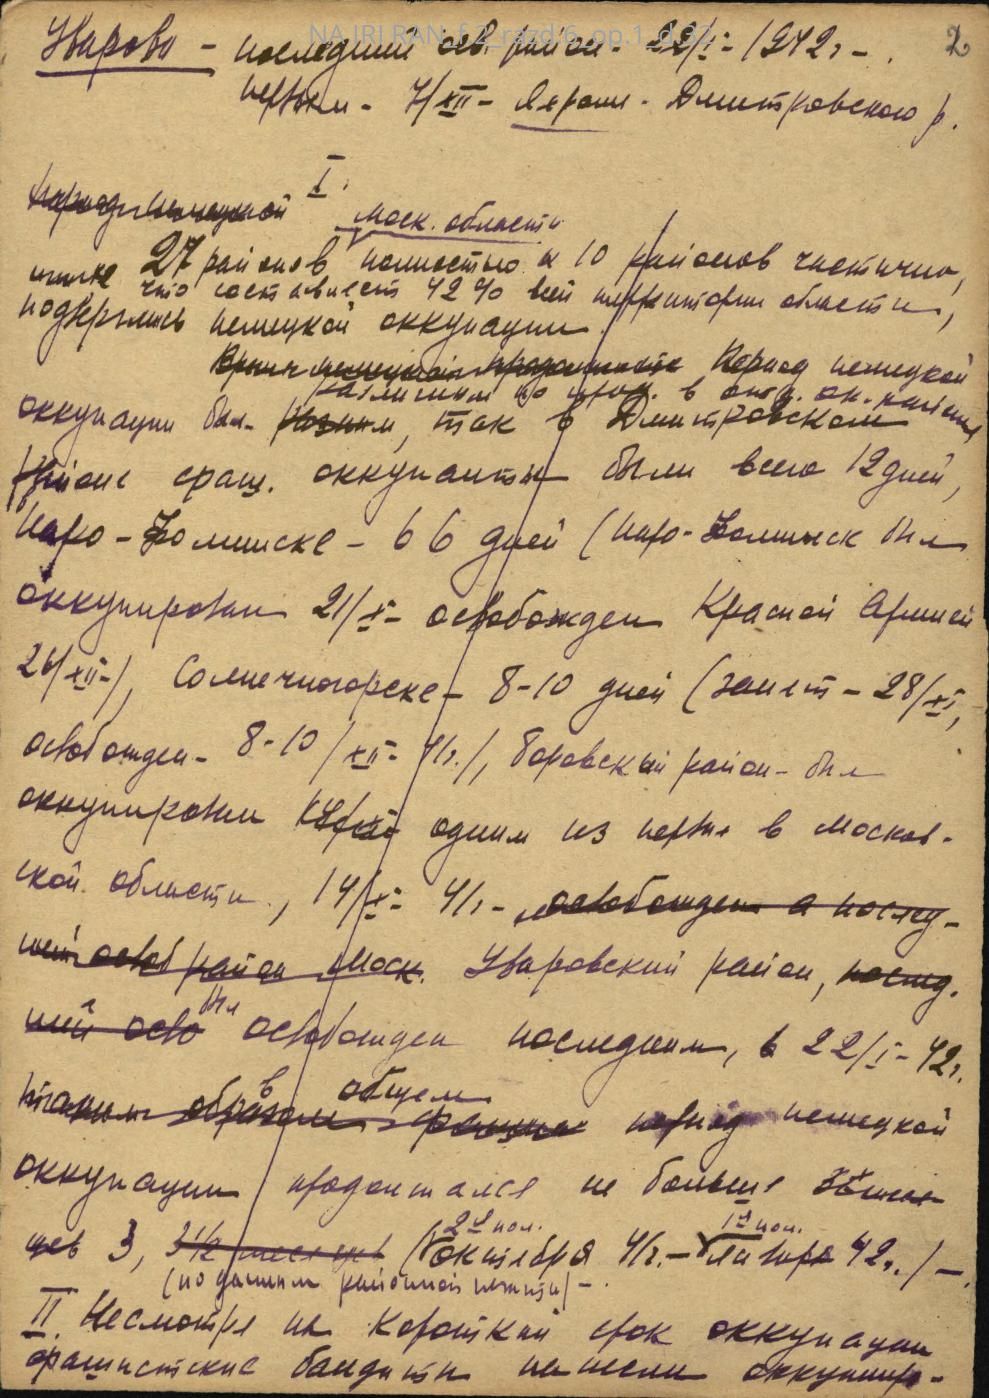 NA IRI RAN_f.2_razd.6_op.1_d.32
2
Уварово – последний осв. район 22/I – 1942 г –.
первым – 7/XII – Яхрома – Дмитровского р.
I.
период немецкой
Моск. области
27 районов полностью и 10 районов частично,
что составляет 42% всей территории области,
подверглись немецкой оккупации.
Время немецкой продолжит. Период немецкой
различным по прод. в отд. ок. районах
оккупации был, так в Дмитровском
районе фаш. оккупанты были всего 12 дней,
Наро-Фоминске – 66 дней (Наро-Фоминск был
оккупирован 21/X – освобожден Красной Армией
26/XII –), Солнечногорске – 8-10 дней (занят – 28/XI,
освобожден – 8-10/XII – 41 г.), Боровский район – был
оккупирован одним из первых в Москов-
ской области, 14/X – 41 г – освобожден а послед-
ний освоб район Моск. Уваровский район, послед.
ний осво был освобожден последним, в 22/I – 42 г.
в общем
таким образом период немецкой
оккупации продолжался не больше
цев 3, 3 1/2 месяцев (октября 41 г. – января 42 г.) –
2-я пол. 1-я пол.
(по данным районной печати) –.
II. Несмотря на короткий срок оккупации
фашистские бандиты нанесли оккупиро-